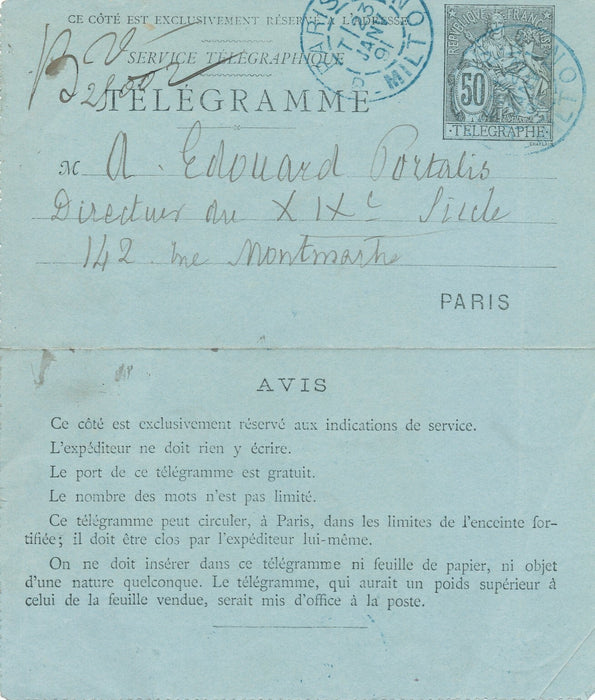 CE CÔTÉ EST EXCLUSIVEMENT RÉSERVÉ A L'ADRESSE
SERVICE TÉLÉGRAPHIQUE
TÉLÉGRAMME
PARIS
23
JANV
91
MILTON
RÉPUBLIQUE FRANÇAISE
50
TÉLÉGRAPHE
M A. Edouard Portalis
Directeur du XIXe Siècle
142 rue Montmartre
PARIS
AVIS
Ce côté est exclusivement réservé aux indications de service.
L'expéditeur ne doit rien y écrire.
Le port de ce télégramme est gratuit.
Le nombre des mots n'est pas limité.
Ce télégramme peut circuler, à Paris, dans les limites de l'enceinte for-
tifiée; il doit être clos par l'expéditeur lui-même.
On ne doit insérer dans ce télégramme ni feuille de papier, ni objet
d'une nature quelconque. Le télégramme, qui aurait un poids supérieur à
celui de la feuille vendue, serait mis d'office à la poste.